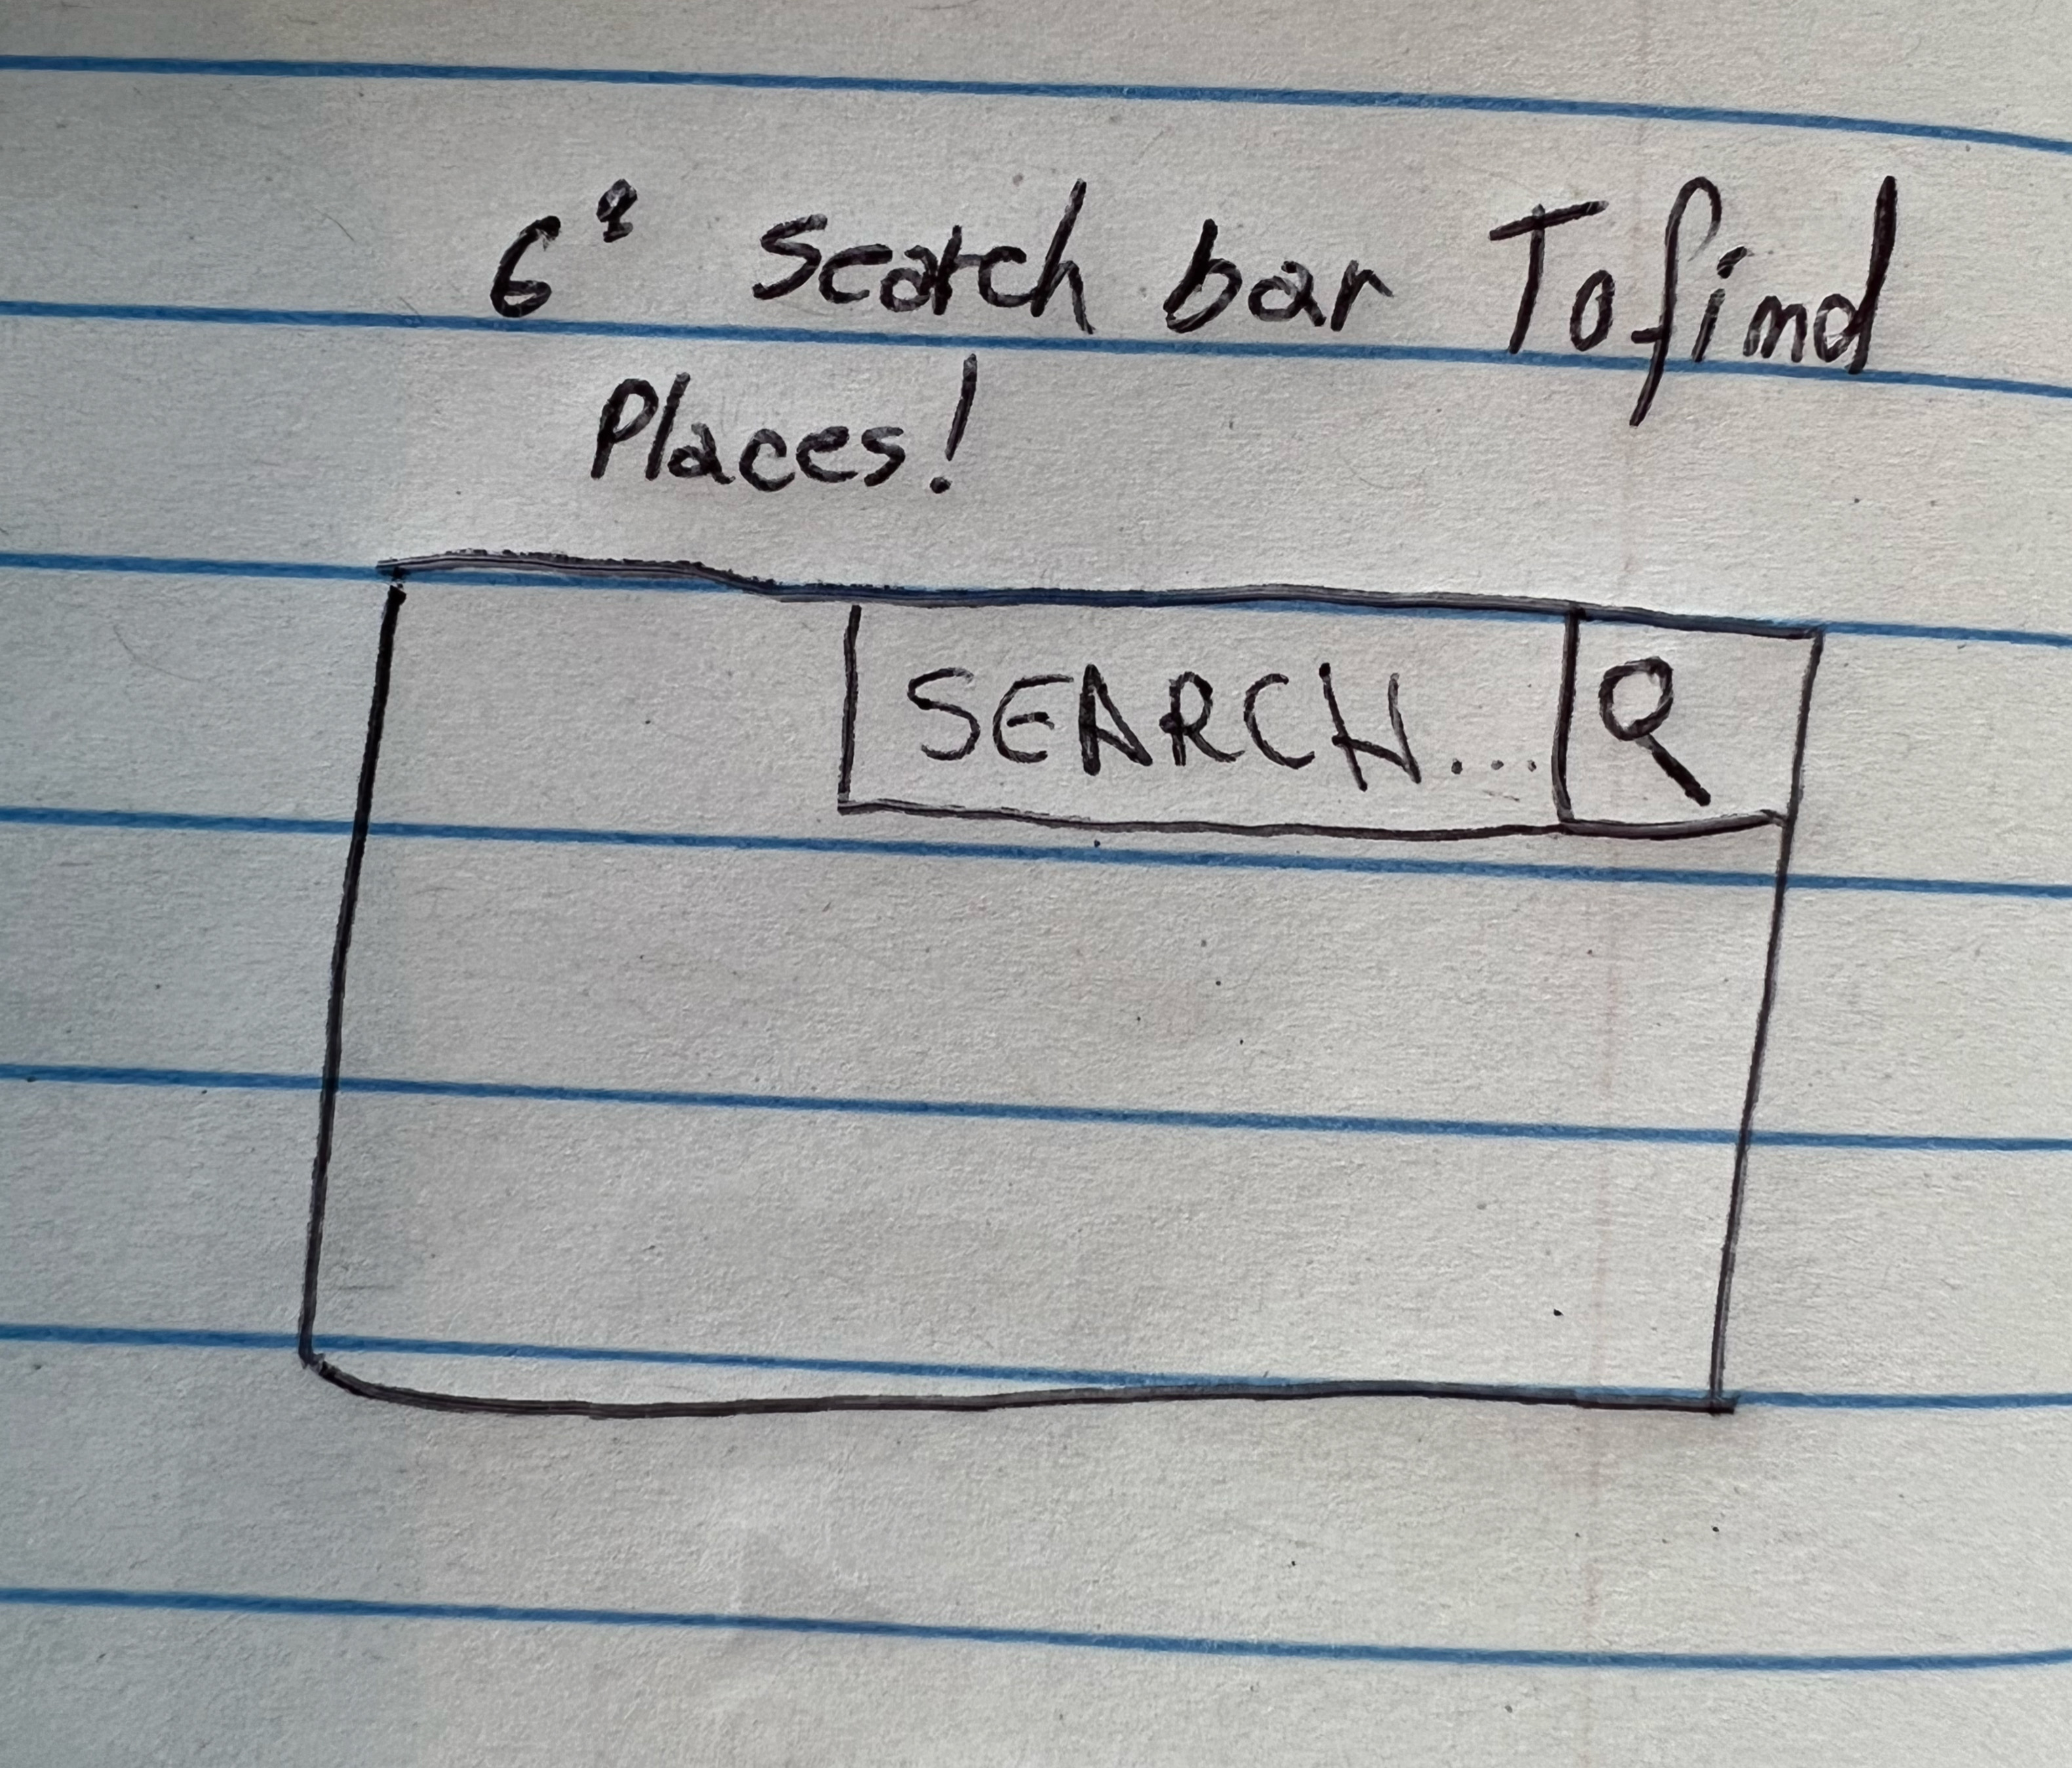 6º Search bar To find
Places!
SEARCH...